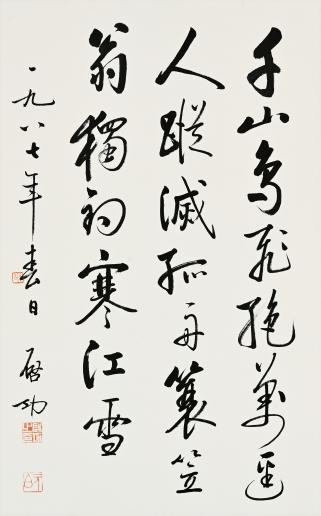 千山鸟飛絶萬逕
人蹤滅孤舟簑笠
翁獨釣寒江雪
一九八七年春日
啓功